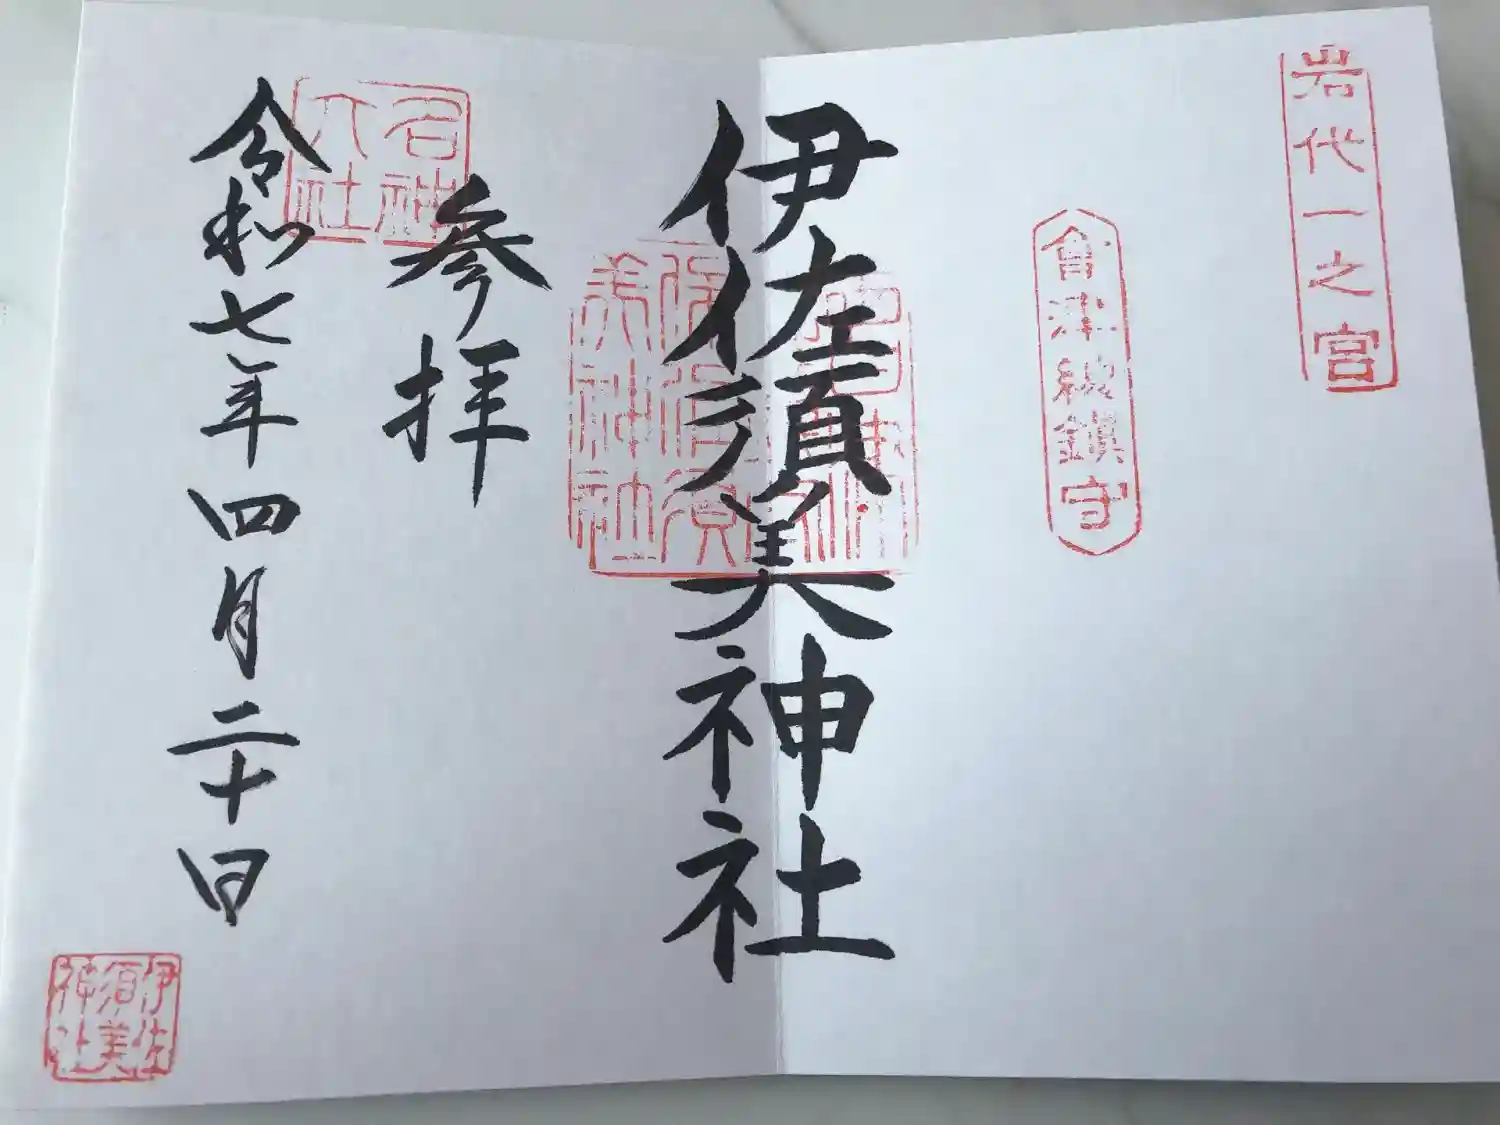 岩代一之宮
會津總鎮守
伊佐須美神社
参拝
名神
大社
令和七年四月二十日
伊佐
須美
神社